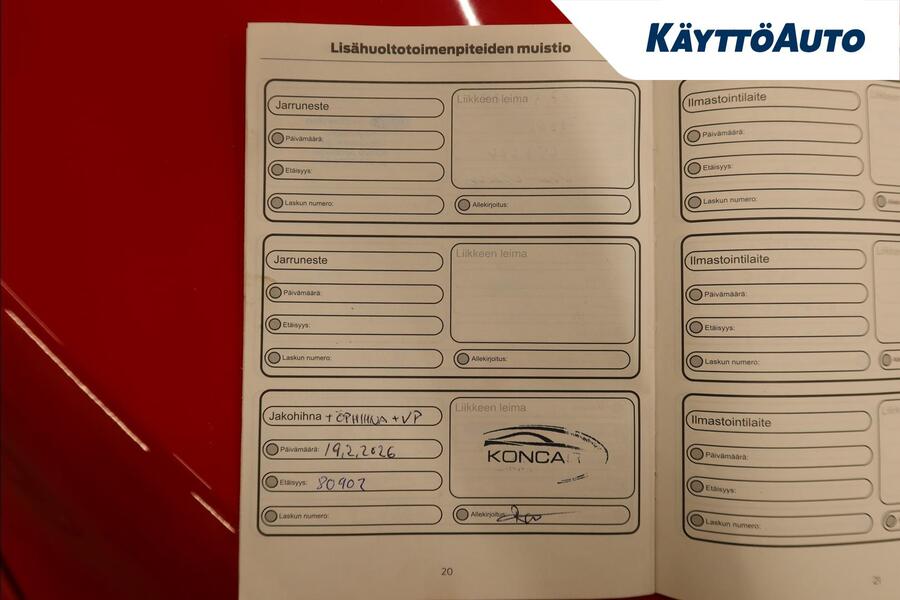 KÄYTTÖAUTO
Lisähuoltotoimenpiteiden muistio
Jarruneste
Päivämäärä:
Etäisyys:
Laskun numero:
Liikkeen leima
Allekirjoitus:
Jarruneste
Päivämäärä:
Etäisyys:
Laskun numero:
Liikkeen leima
Allekirjoitus:
Jakohihna + ÖPHIHNA + VP
Päivämäärä: 19.2.2026
Etäisyys: 80902
Laskun numero:
Liikkeen leima
KONCA
Allekirjoitus:
20
Ilmastointilaite
Päivämäärä:
Etäisyys:
Laskun numero:
Ilmastointilaite
Päivämäärä:
Etäisyys:
Laskun numero:
Ilmastointilaite
Päivämäärä:
Etäisyys:
Laskun numero:
21